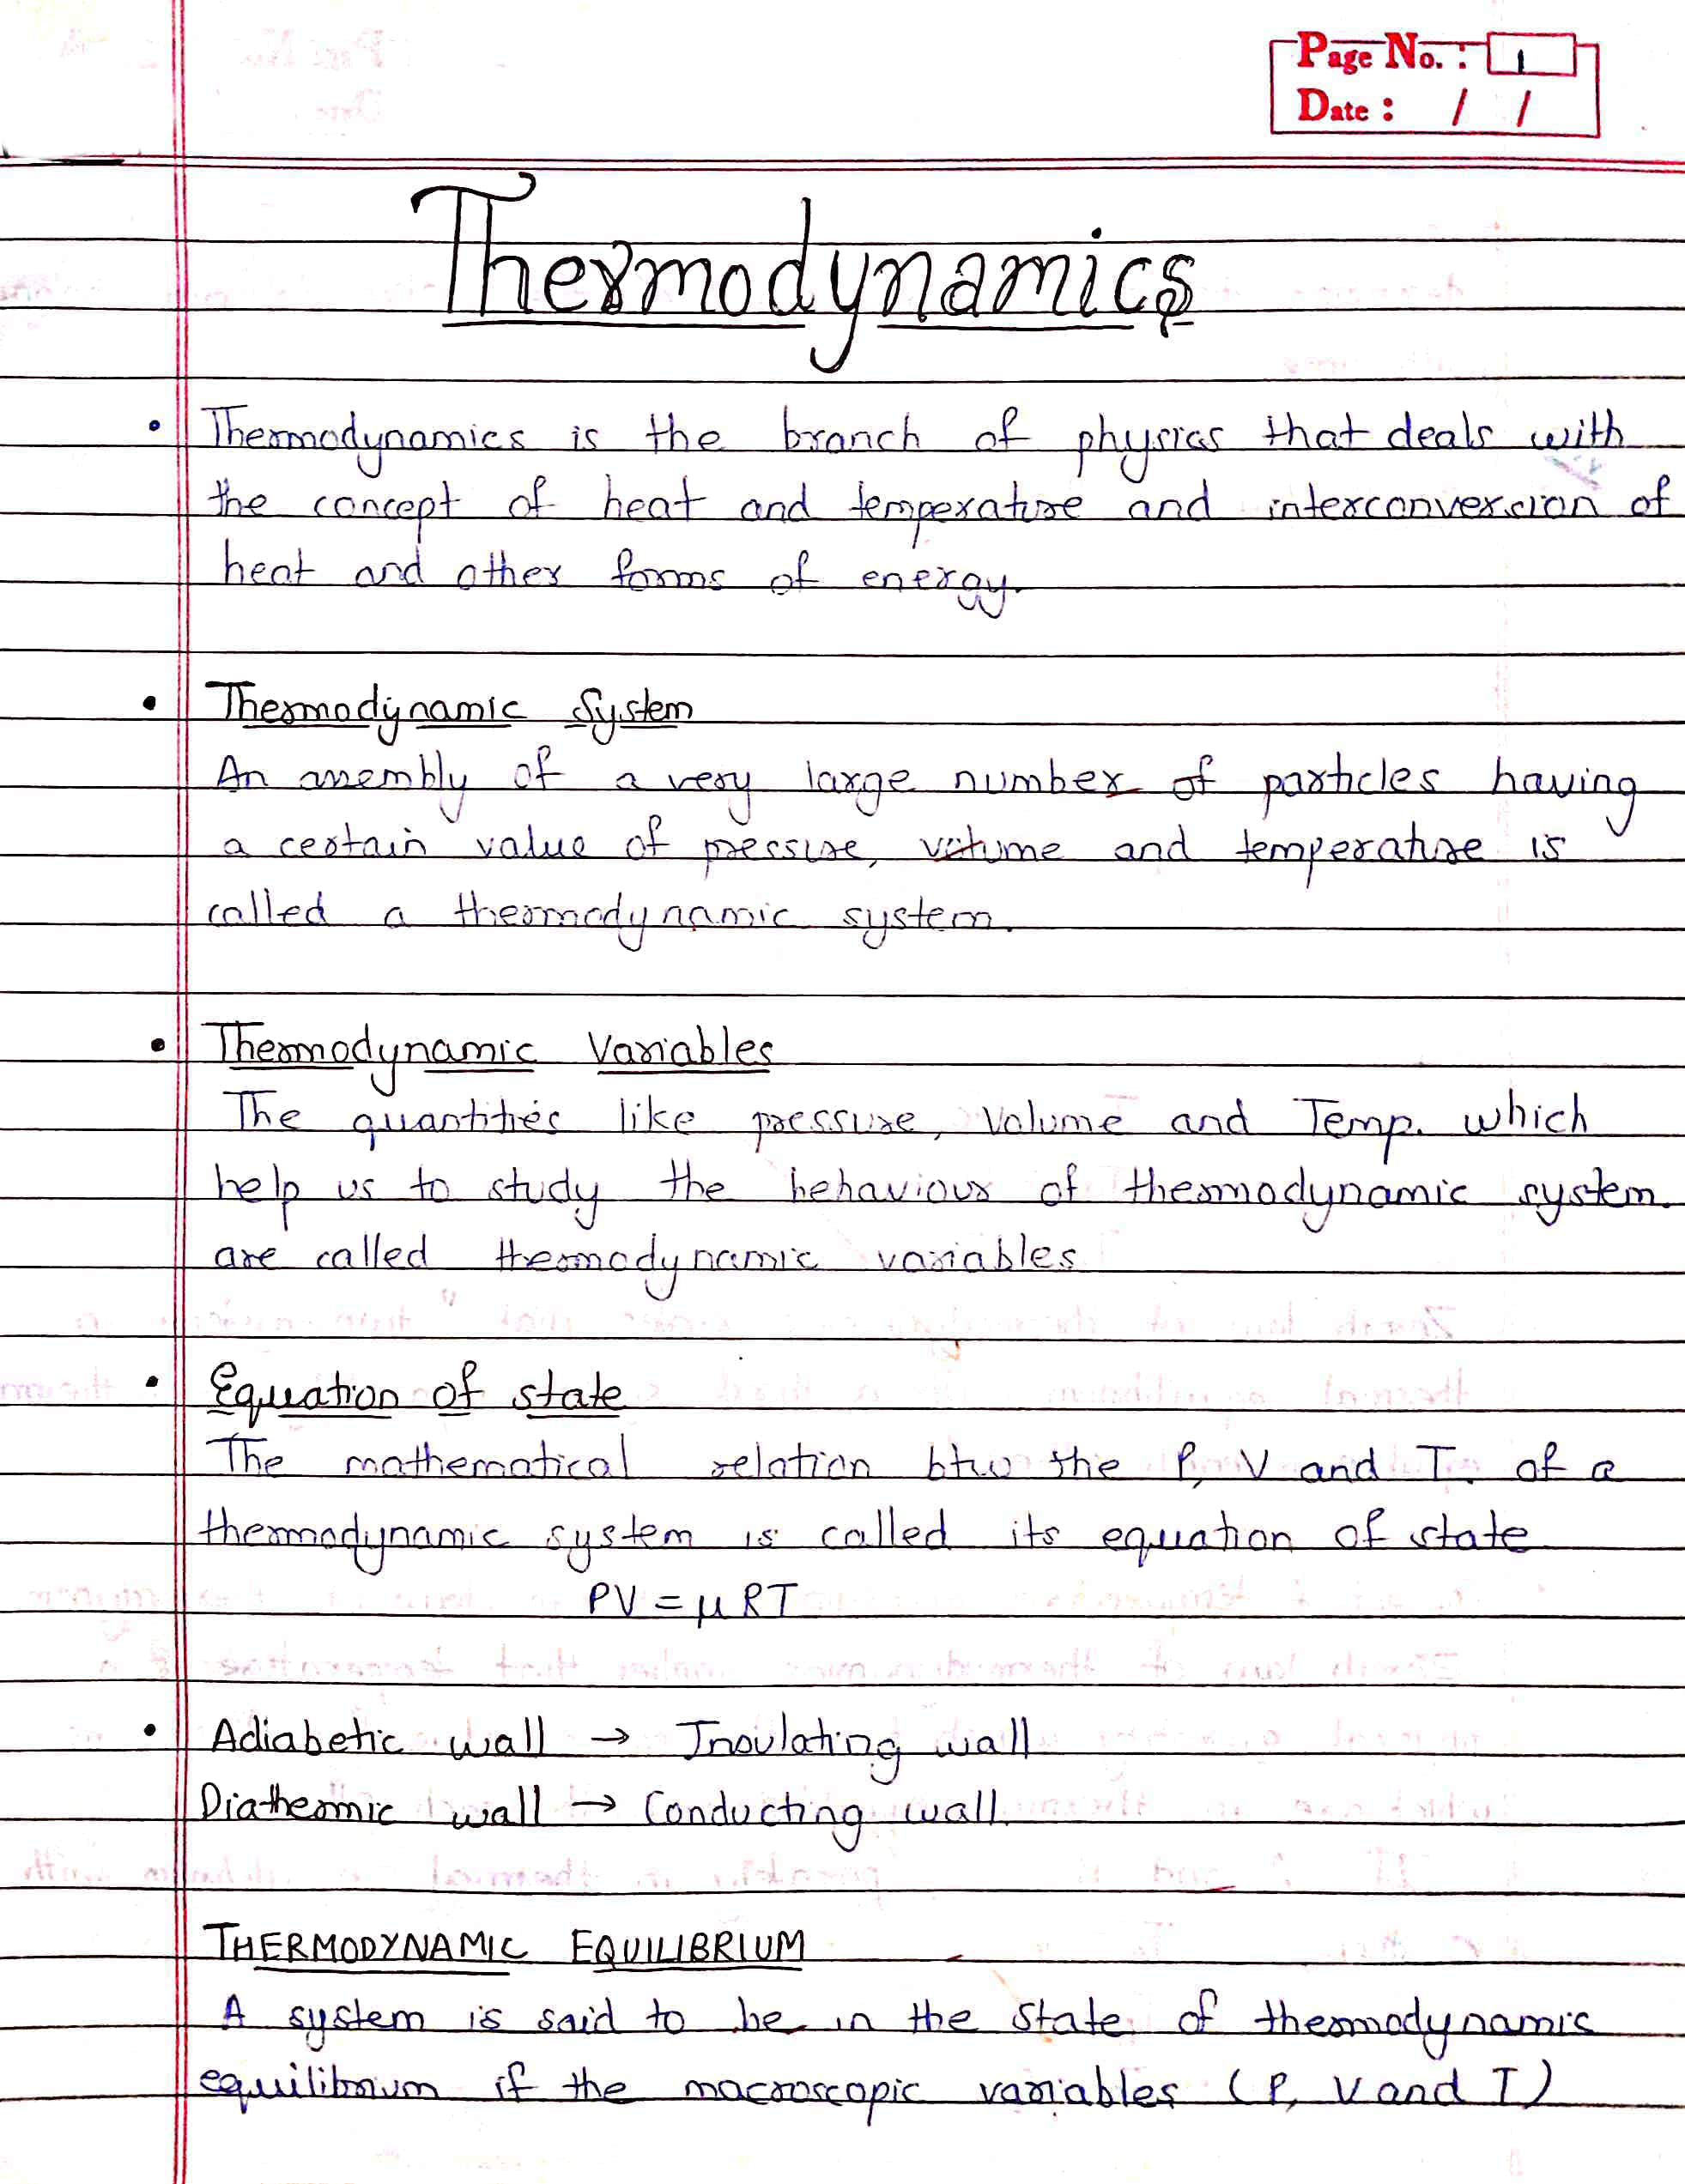 Page No. : 1
Date : / /
Thermodynamics
• Thermodynamics is the branch of physics that deals with
the concept of heat and temperature and interconversion of
heat and other forms of energy.
• Thermodynamic System
An assembly of a very large number of particles having
a certain value of pressure, volume and temperature is
called a thermodynamic system.
• Thermodynamic Variables
The quantities like pressure, Volume and Temp. which
help us to study the behaviour of thermodynamic system.
are called thermodynamic variables
• Equation of state
The mathematical relation btw the P, V and T. of a
thermodynamic system is called its equation of state
PV = μRT
• Adiabetic wall → Insulating wall
Diathermic wall → Conducting wall.
THERMODYNAMIC EQUILIBRIUM
A system is said to be in the state of thermodynamic
equilibrium if the macroscopic variables (P, V and T)